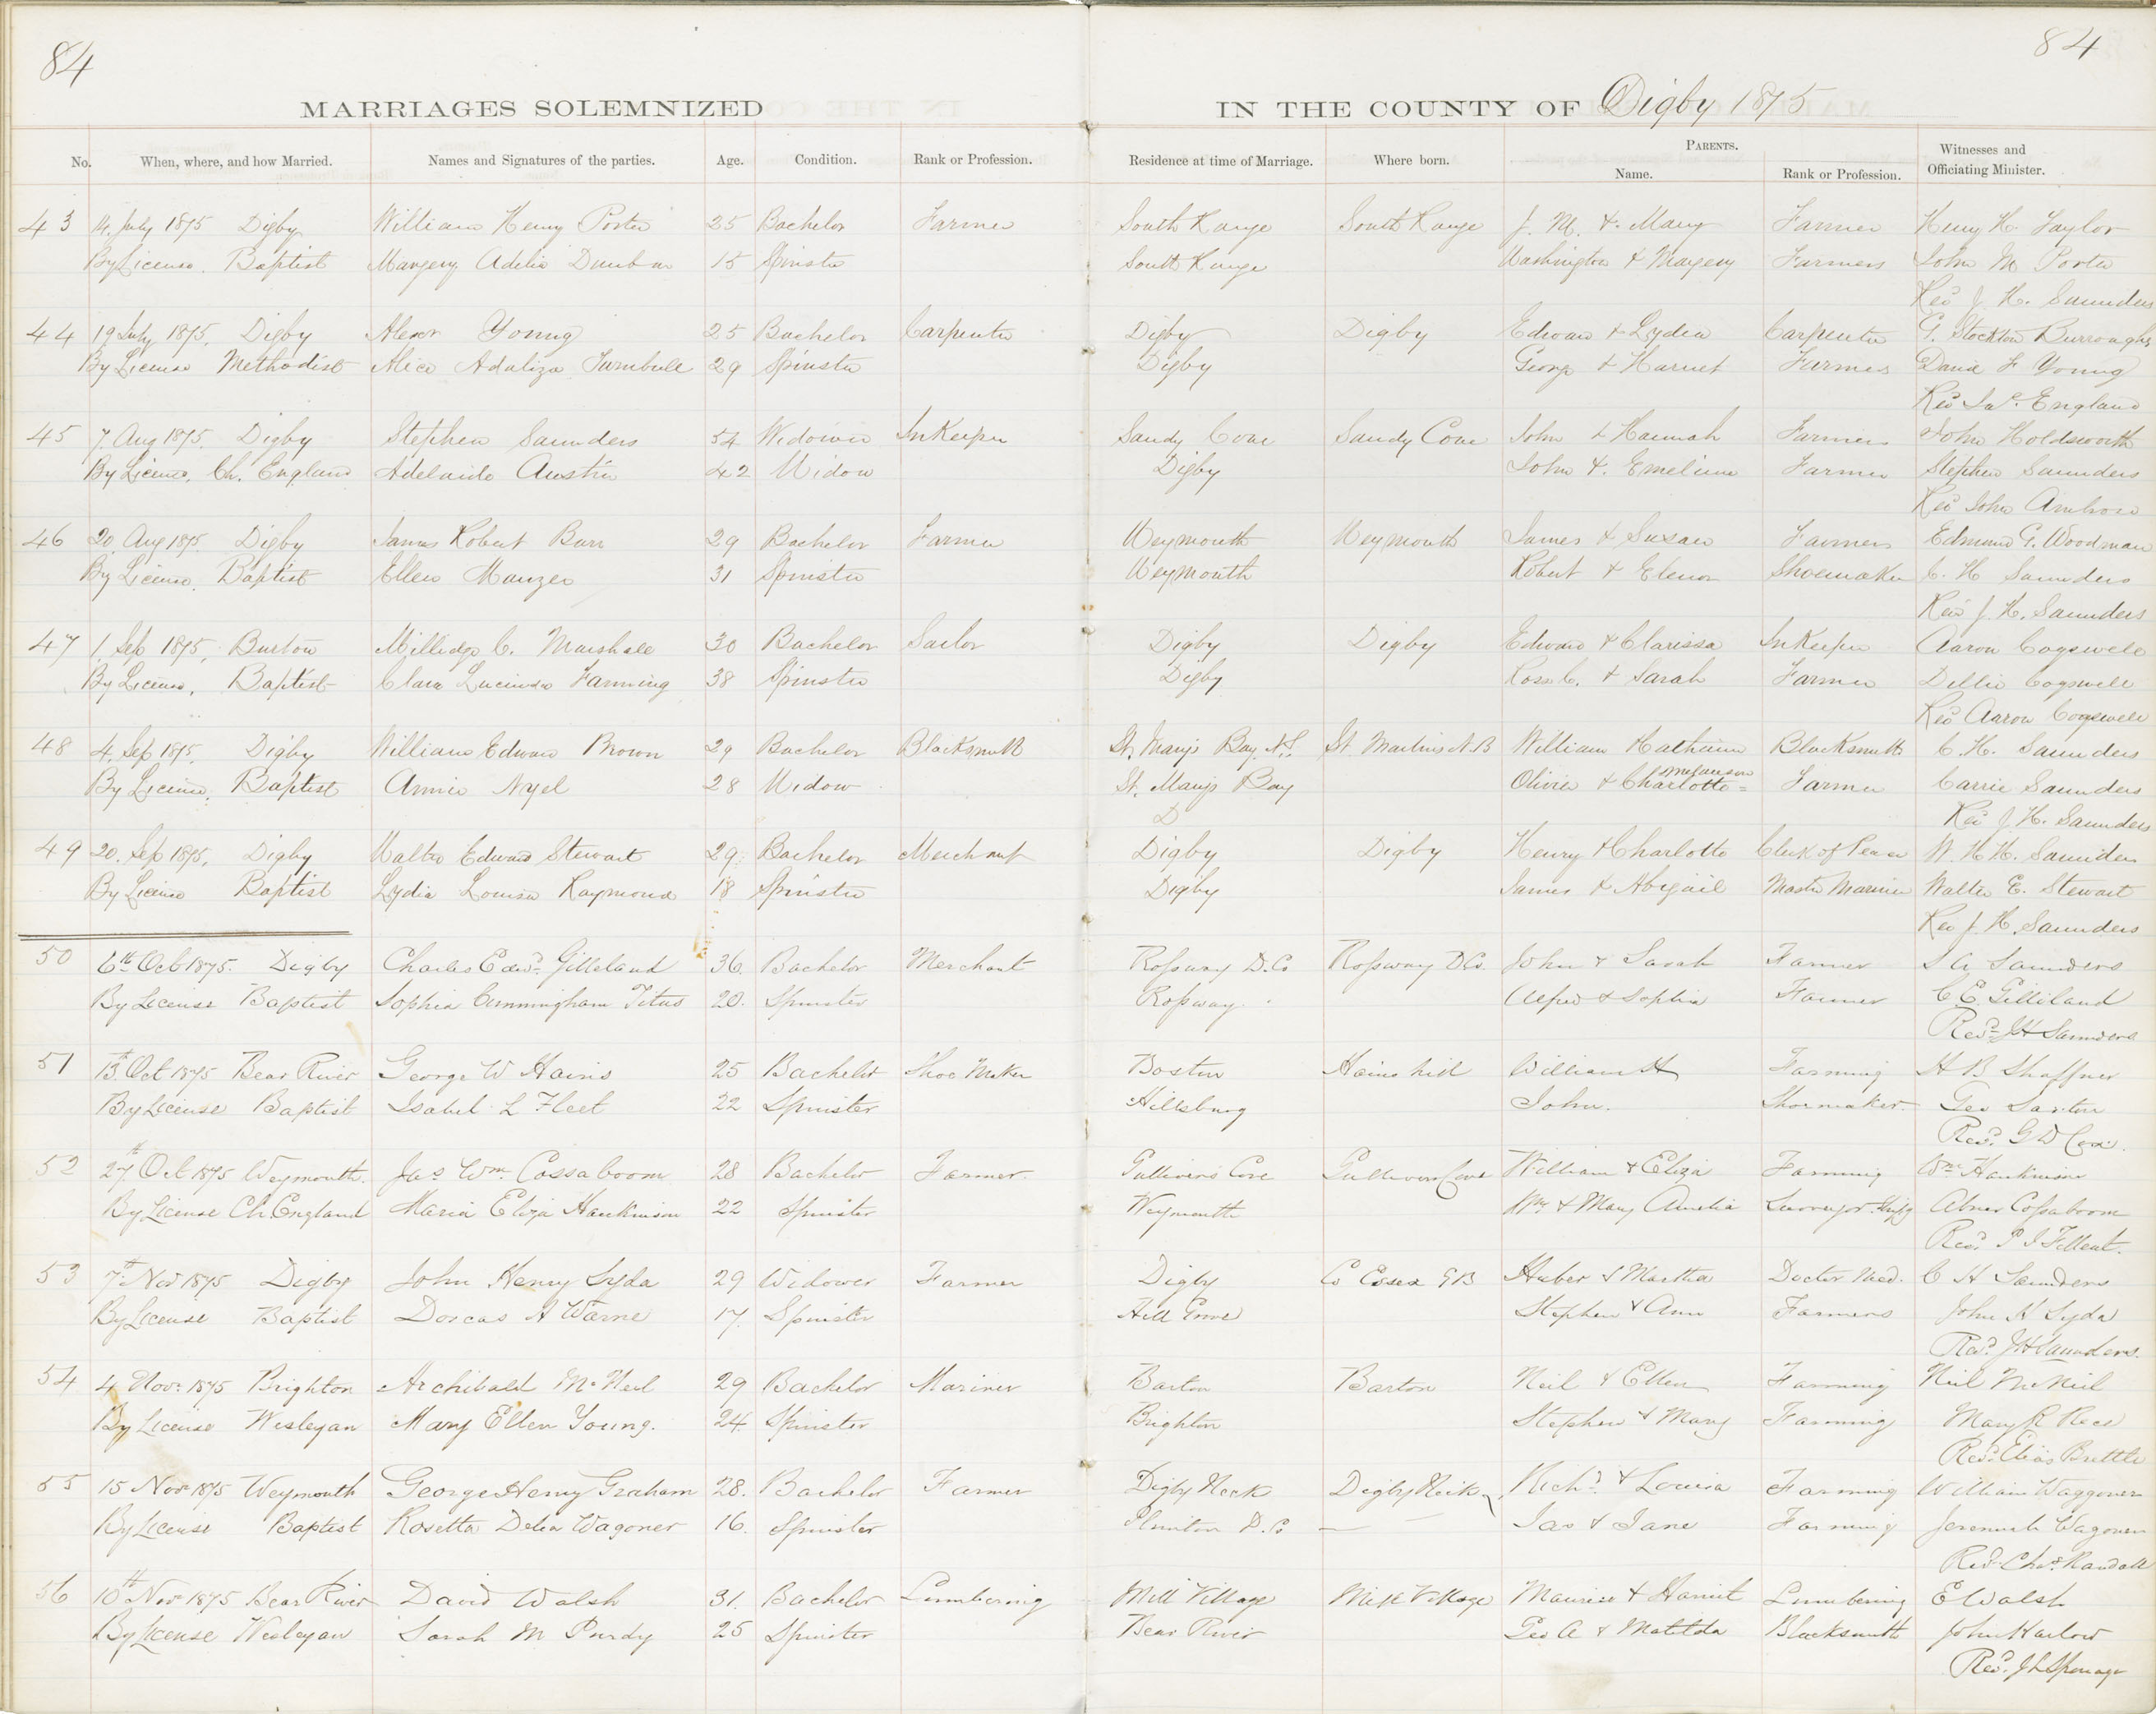 84
84
MARRIAGES SOLEMNIZED IN THE COUNTY OF Digby 1875
No. When, where, and how Married. Names and Signatures of the parties. Age. Condition. Rank or Profession. Residence at time of Marriage. Where born. PARENTS. Name. Rank or Profession. Witnesses and Officiating Minister.
43 14 July 1875 Digby William Henry Porter 25 Bachelor Farmer South Range South Range J. M. & Mary Farmer Henry H. Taylor
By License. Baptist Margery Adelia Dunbar 15 Spinster South Range Washington & Margery Farmers John M Porter
Revd J. H. Saunders
44 19 July 1875. Digby Alexr Young 25 Bachelor Carpenter Digby Digby Edward & Lydia Carpenter G. Stockton Burroughs
By License Methodist Alice Adaliza Turnbull 29 Spinster Digby George & Harriet Farmers David F Young
Revd Jas. England
45 7 Aug 1875. Digby Stephen Saunders 54 Widower InKeeper Sandy Cove Sandy Cove John & Hannah Farmers John Holdsworth
By License. Ch. England Adelaide Austin 42 Widow Digby John & Emeline Farmer Stephen Saunders
Revd John Ambrose
46 20 Aug 1875. Digby James Robert Barr 29 Bachelor Farmer Weymouth Weymouth James & Susan Farmers Edmund G. Woodman
By License. Baptist Ellen Manzer 31 Spinster Weymouth Robert & Elenor Shoemaker C. H Saunders
Revd J. H. Saunders
47 1. Sep 1875, Burton Millidge C. Marshall 30 Bachelor Sailor Digby Digby Edward & Clarissa InKeeper Aaron Cogswell
By License, Baptist Clara Lucinda Fanning 38 Spinster Digby Ross C. & Sarah Farmer Dellie Cogswell
Revd Aaron Cogswell
48 4. Sep 1875. Digby William Edward Brown 29 Bachelor Blacksmith St. Marys Bay N.S. St. Martins N.B William Blacksmith C. H. Saunders
By License. Baptist Annie Nogel 28 Widow St. Marys Bay Olivier & Charlotte Melanson Farmer Carrie Saunders
D Revd J. H. Saunders
49 20. Sep 1875, Digby Walter Edward Stewart 29. Bachelor Merchant Digby Digby Henry & Charlotte Clerk of Peace W. H. H. Saunders
By License Baptist Lydia Louisa Raymond 18 Spinster Digby James & Abigail Master Mariner Walter E. Stewart
Rev J. H. Saunders
50 6th Oct 1875. Digby Charles Edwd Gilleland 36. Bachelor Merchant Rossway D.Co Rossway D.Co. John & Sarah Farmer S A Saunders
By License Baptist Sophia Cunningham Titus 20. Spinster Rossway. Alfred & Sophia Farmer C E Gilliland
Revd J H Saunders
51 13th Oct 1875 Bear River George W Hains 25 Bachelor Shoe Maker Boston Hains hill William H Farming H B Shaffner
By License Baptist Isabel L Fleet 22 Spinster Hillsburg John. Shoemaker. Geo
Revd. G D Cox.
52 27th Oct 1875 Weymouth. Jas Wm. Cossaboom 28 Bachelor Farmer. Gullivers Cove Gullivers Cove William & Eliza Farming Wm Hankinson
By License Ch. England Maria Eliza Hankinson 22 Spinster Weymouth Wm & Mary Amelia Surveyor Abner Cossaboom
Revd. P J Filleul.
53 7th Nov 1875 Digby John Henry Syda 29 Widower Farmer Digby Co Essex GB Huber & Martha Doctor Med. C H Saunders
By License Baptist Dorcas A Warne 17. Spinster Hill Grove Stephen & Ann Farmers John H Syda
Revd. J H Saunders.
54 4 Nov. 1875 Brighton Archibald McNeil 29 Bachelor Mariner Barton Barton Neil & Ellen Farming Neil McNeil
By License Wesleyan Mary Ellen Young. 24. Spinster Brighton Stephen & Mary Farming Mary R Rece
Revd. Elias Brettle
55 15 Nov. 1875 Weymouth George Henry Graham 28. Bachelor Farmer Digby Neck Digby Neck Richd & Louisa Farming William Waggoner
By License Baptist Rosetta Delia Wagoner 16. Spinster D.Co — Jas & Jane Farming Jeremiah Wagoner
Revd. Chas. Randall
56 10th Nov 1875 Bear River David Walsh 31. Bachelor Lumbering Mill Village Mill Village Maurice & Harriet Lumbering E Walsh
By License Wesleyan Sarah M Purdy 25 Spinster Bear River Geo A & Matilda Blacksmith John Harlow
Revd. J L Sponagle